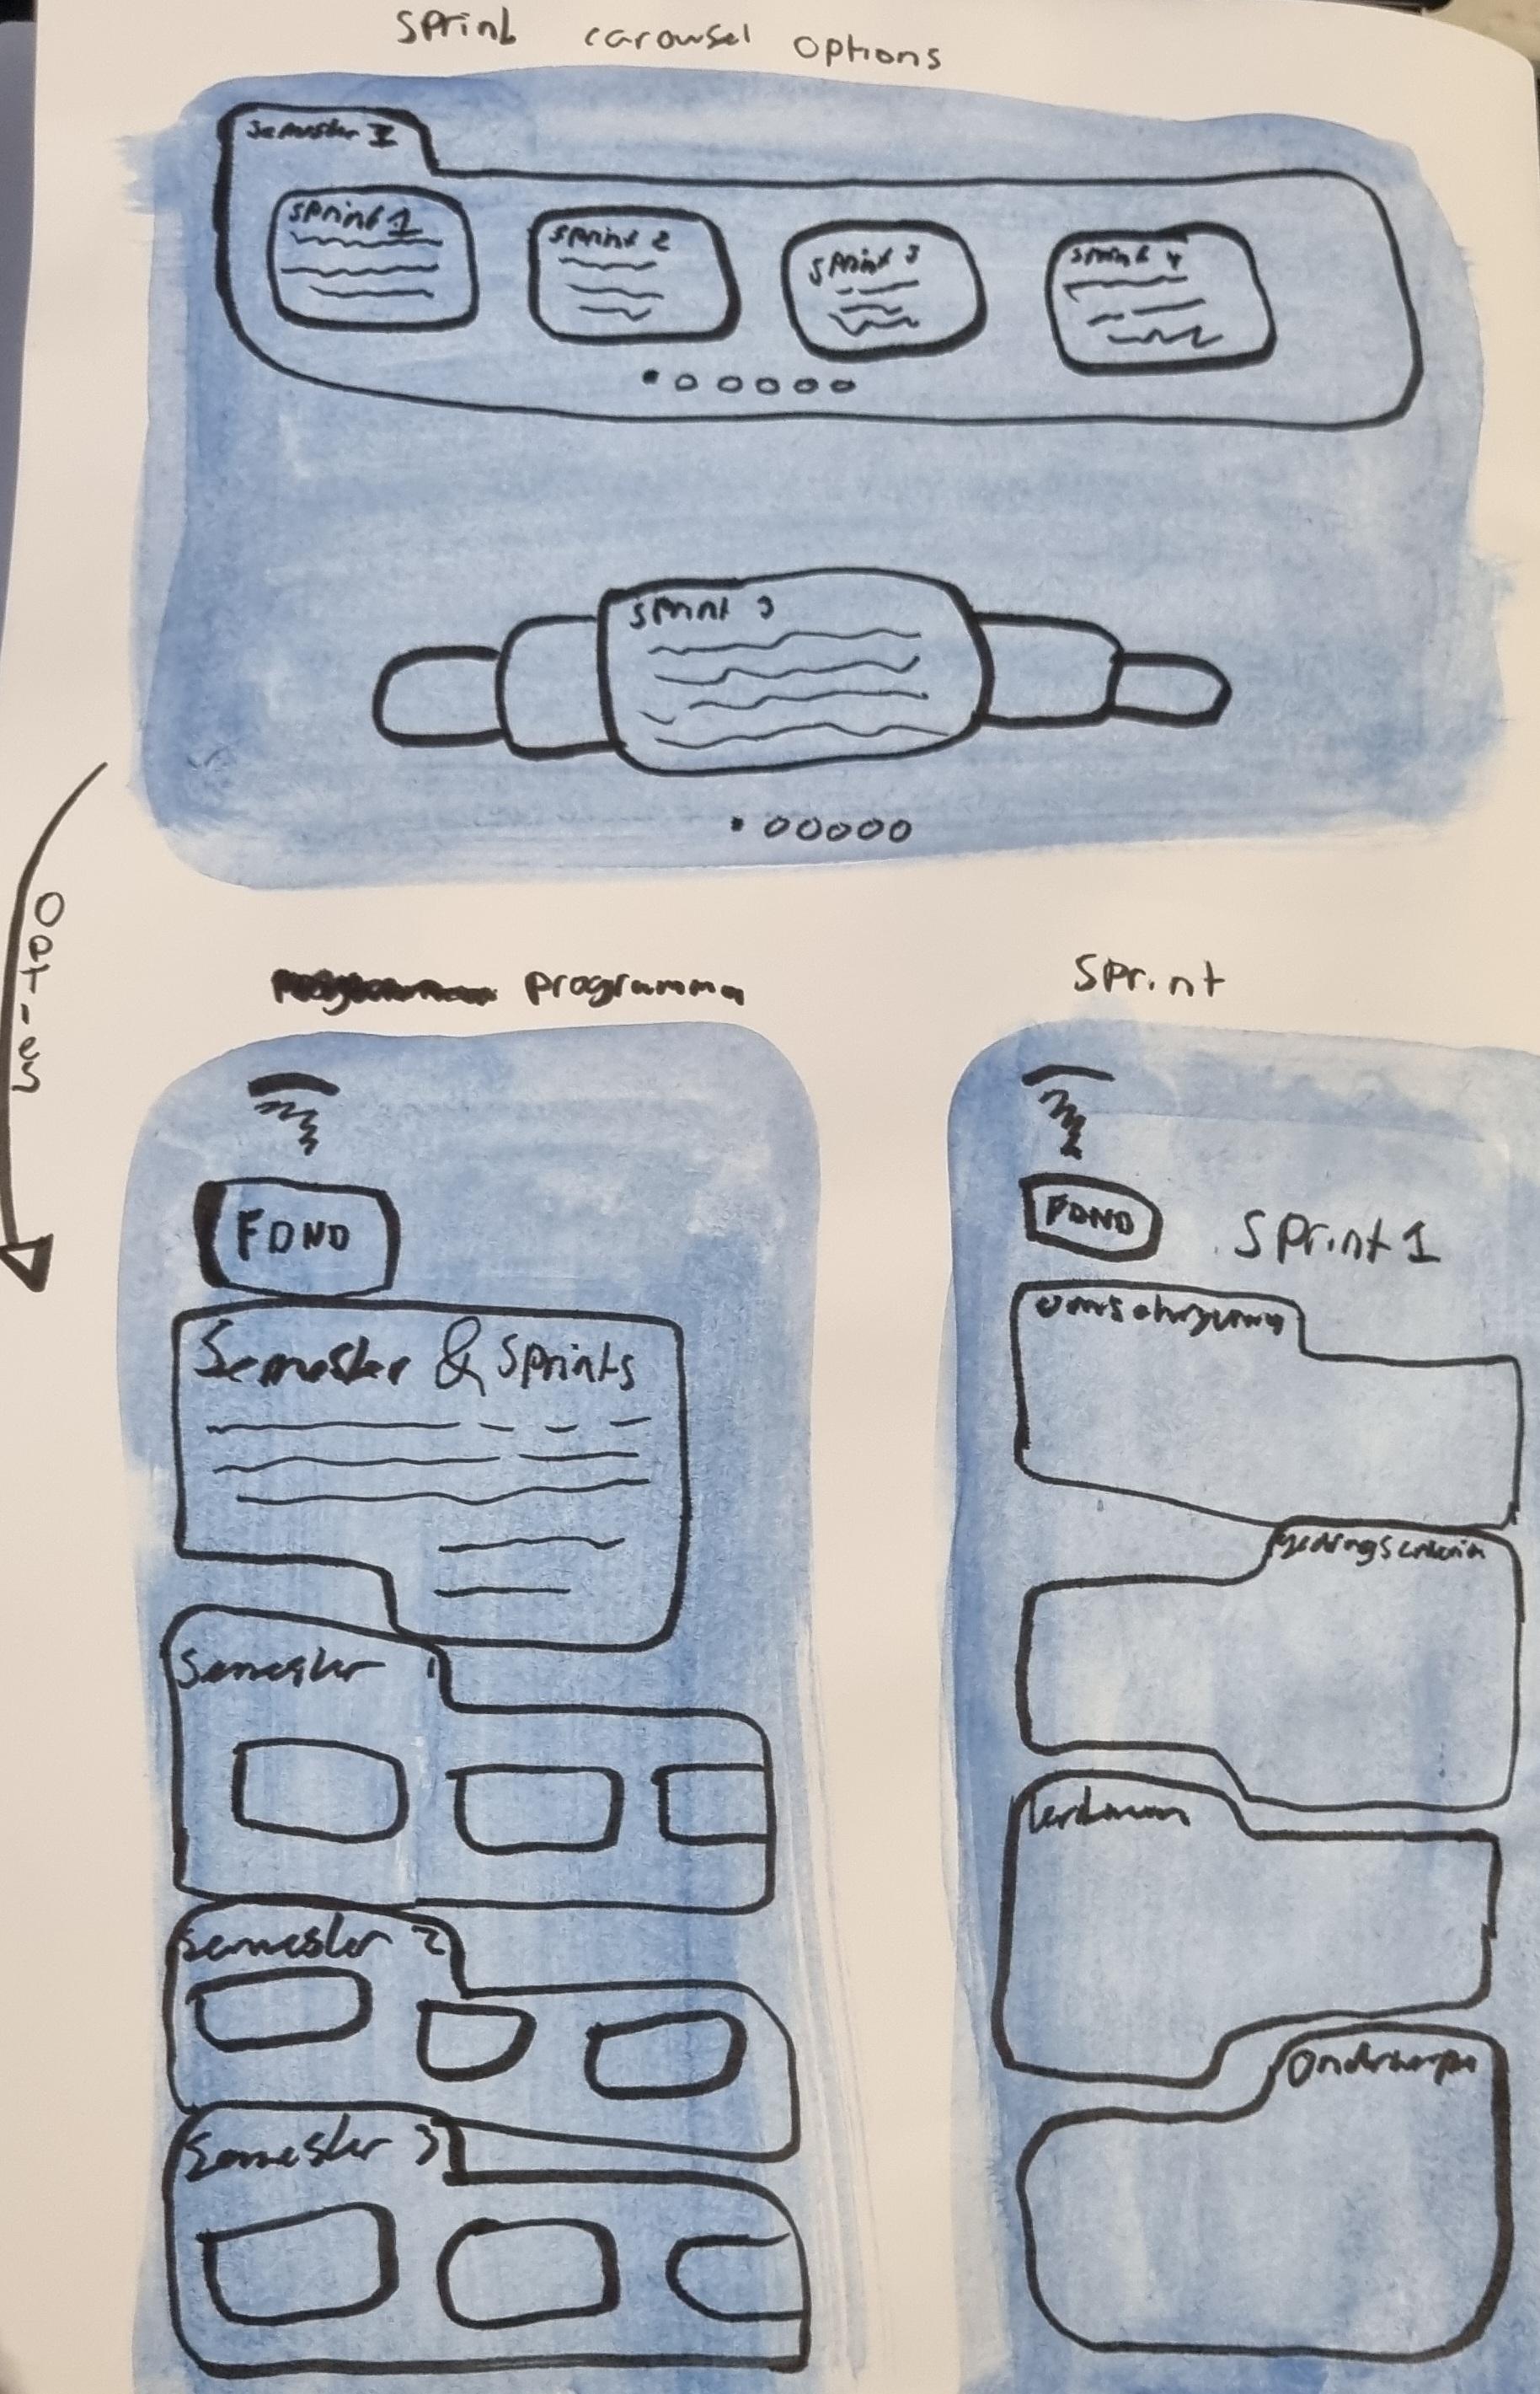 Sprint carousel options
Semester I
Sprint 1
Sprint 2
Sprint 3
Sprint 4
Sprint
opties
programma
Sprint
FDND
Semester & Sprints
Semester 1
Semester 2
Semester 3
FDND
Sprint 1
omschrijving
gedragscriteria
leerdoelen
Onderwerpen